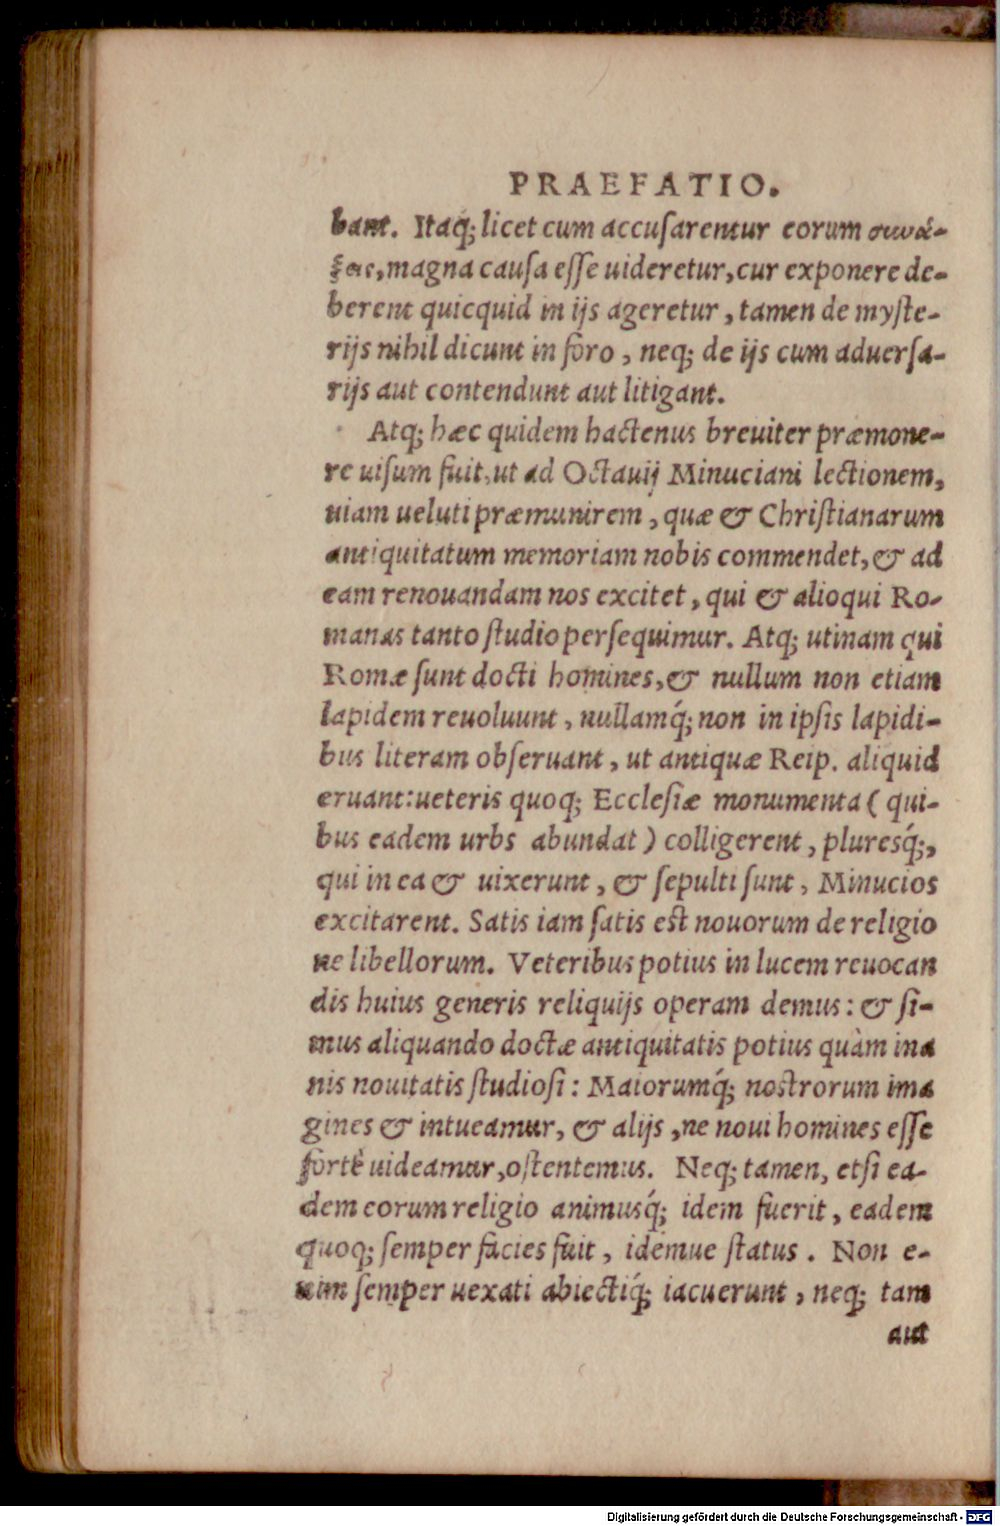 PRAEFATIO.
bant. Itaq; licet cum accuſarentur eorum συνά-
ξεις, magna cauſa eſſe uideretur, cur exponere de-
berent quicquid in ijs ageretur, tamen de myſte-
rijs nihil dicunt in foro, neq; de ijs cum aduerſa-
rijs aut contendunt aut litigant.
Atq; hæc quidem hactenus breuiter præmone-
re uiſum fuit, ut ad Octauij Minuciani lectionem,
uiam ueluti præmunirem, quæ & Chriſtianarum
antiquitatum memoriam nobis commendet, & ad
eam renouandam nos excitet, qui & alioqui Ro-
manas tanto ſtudio perſequimur. Atq; utinam qui
Romæ ſunt docti homines, & nullum non etiam
lapidem reuoluunt, nullamq́; non in ipſis lapidi-
bus literam obſeruant, ut antiquæ Reip. aliquid
eruant: ueteris quoq; Eccleſiæ monumenta ( qui-
bus eadem urbs abundat ) colligerent, pluresq́;,
qui in ea & uixerunt, & ſepulti ſunt, Minucios
excitarent. Satis iam ſatis eſt nouorum de religio
ne libellorum. Veteribus potius in lucem reuocan
dis huius generis reliquijs operam demus: & ſi-
mus aliquando doctæ antiquitatis potius quàm ina
nis nouitatis ſtudioſi: Maiorumq́; noſtrorum ima
gines & intueamur, & alijs, ne noui homines eſſe
fortè uideamur, oſtentemus. Neq; tamen, etſi ea-
dem eorum religio animusq́; idem fuerit, eadem
quoq; ſemper facies fuit, idémue ſtatus. Non e-
nim ſemper uexati abiectiq́; iacuerunt, neq; tam
aut
Digitalisierung gefördert durch die Deutsche Forschungsgemeinschaft - DFG